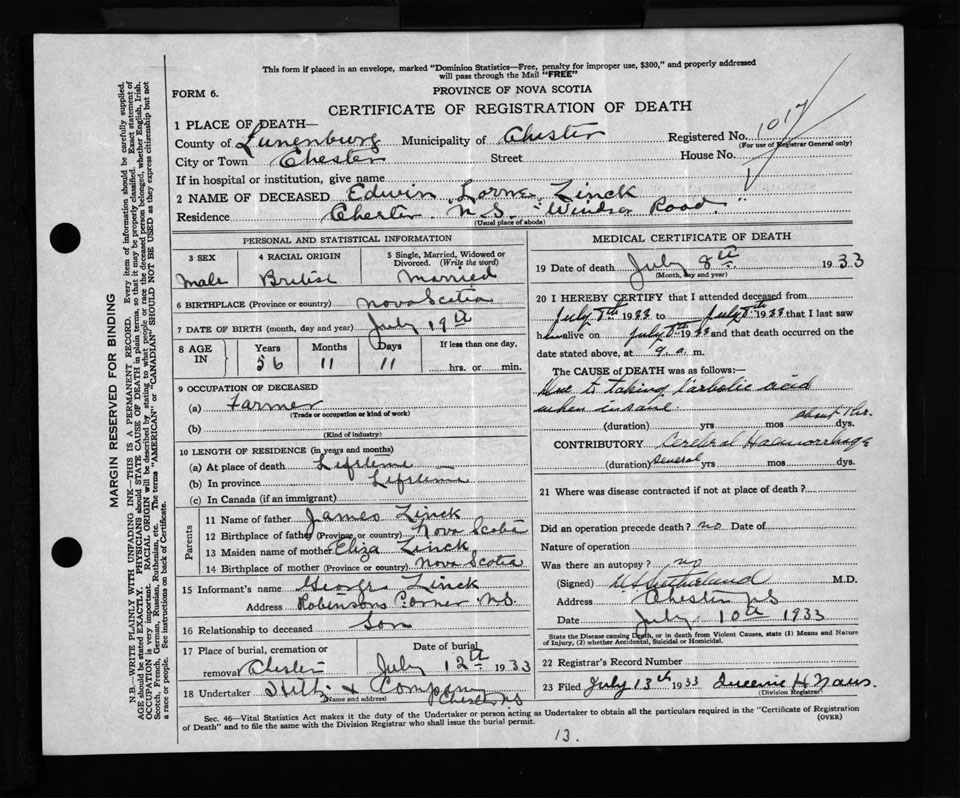 This form if placed in an envelope, marked "Dominion Statistics—Free, penalty for improper use, $300," and properly addressed
will pass through the Mail "FREE"
FORM 6.
PROVINCE OF NOVA SCOTIA
CERTIFICATE OF REGISTRATION OF DEATH
1 PLACE OF DEATH—
County of Lunenburg Municipality of Chester Registered No. 1017
(For use of Registrar General only)
City or Town Chester Street House No.
If in hospital or institution, give name
2 NAME OF DECEASED Edwin Lorne Zinck
Residence Chester N.S. "Windsor Road"
(Usual place of abode)
PERSONAL AND STATISTICAL INFORMATION
3 SEX 4 RACIAL ORIGIN 5 Single, Married, Widowed or Divorced. (Write the word)
Male British Married
6 BIRTHPLACE (Province or country) Nova Scotia
7 DATE OF BIRTH (month, day and year) July 19th
8 AGE IN Years Months Days If less than one day,
56 11 11 hrs. or min.
9 OCCUPATION OF DECEASED
(a) Farmer
(Trade or occupation or kind of work)
(b)
(Kind of industry)
10 LENGTH OF RESIDENCE (in years and months)
(a) At place of death Lifetime
(b) In province Lifetime
(c) In Canada (if an immigrant)
Parents
11 Name of father James Zinck
12 Birthplace of father (Province or country) Nova Scotia
13 Maiden name of mother Eliza Zinck
14 Birthplace of mother (Province or country) Nova Scotia
15 Informant's name George Zinck
Address Robinsons Corner N.S.
16 Relationship to deceased Son
17 Place of burial, cremation or removal Date of burial
Chester July 12th 1933
18 Undertaker & Company
(Name and address) Chester N.S
MEDICAL CERTIFICATE OF DEATH
19 Date of death July 8th 1933
(Month, day and year)
20 I HEREBY CERTIFY that I attended deceased from
July 8th 1933 to July 8th 1933 that I last saw
him alive on July 8th 1933 and that death occurred on
date stated above, at 9 a. m.
The CAUSE of DEATH was as follows:—
Due to taking Carbolic acid
when insane.
(duration) yrs mos dys. about 1 hr.
CONTRIBUTORY Cerebral Haemorrhage
(duration) Several yrs mos dys.
21 Where was disease contracted if not at place of death?
Did an operation precede death? no Date of
Nature of operation
Was there an autopsy? no
(Signed) M.D.
Address Chester N.S
Date July 10th 1933
State the Disease causing Death, or in death from Violent Causes, state (1) Means and Nature
of Injury, (2) whether Accidental, Suicidal or Homicidal.
22 Registrar's Record Number
23 Filed July 13th 1933 Queenie H Naus.
(Division Registrar)
Sec. 46—Vital Statistics Act makes it the duty of the Undertaker or person acting as Undertaker to obtain all the particulars required in the "Certificate of Registration
of Death" and to file the same with the Division Registrar who shall issue the burial permit. (OVER)
13.
MARGIN RESERVED FOR BINDING
N.B.—WRITE PLAINLY WITH UNFADING INK—THIS IS A PERMANENT RECORD. Every item of information should be carefully supplied.
AGE should be stated EXACTLY. PHYSICIANS should STATE CAUSE OF DEATH in plain terms, so that it may be properly classified. Exact statement of
OCCUPATION is very important. RACIAL ORIGIN will be described by stating to what people or race the deceased person belonged, whether English, Irish,
Scotch, French, German, Russian, Ruthenian, etc. The terms "AMERICAN" or "CANADIAN" SHOULD NOT BE USED as they express citizenship but not
a race or people. See instructions on back of Certificate.